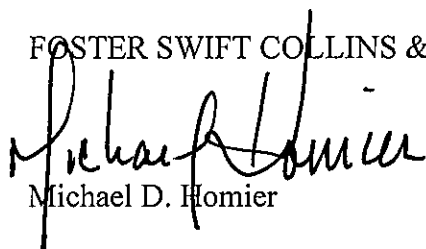 FOSTER SWIFT COLLINS &
Michael Homier
Michael D. Homier